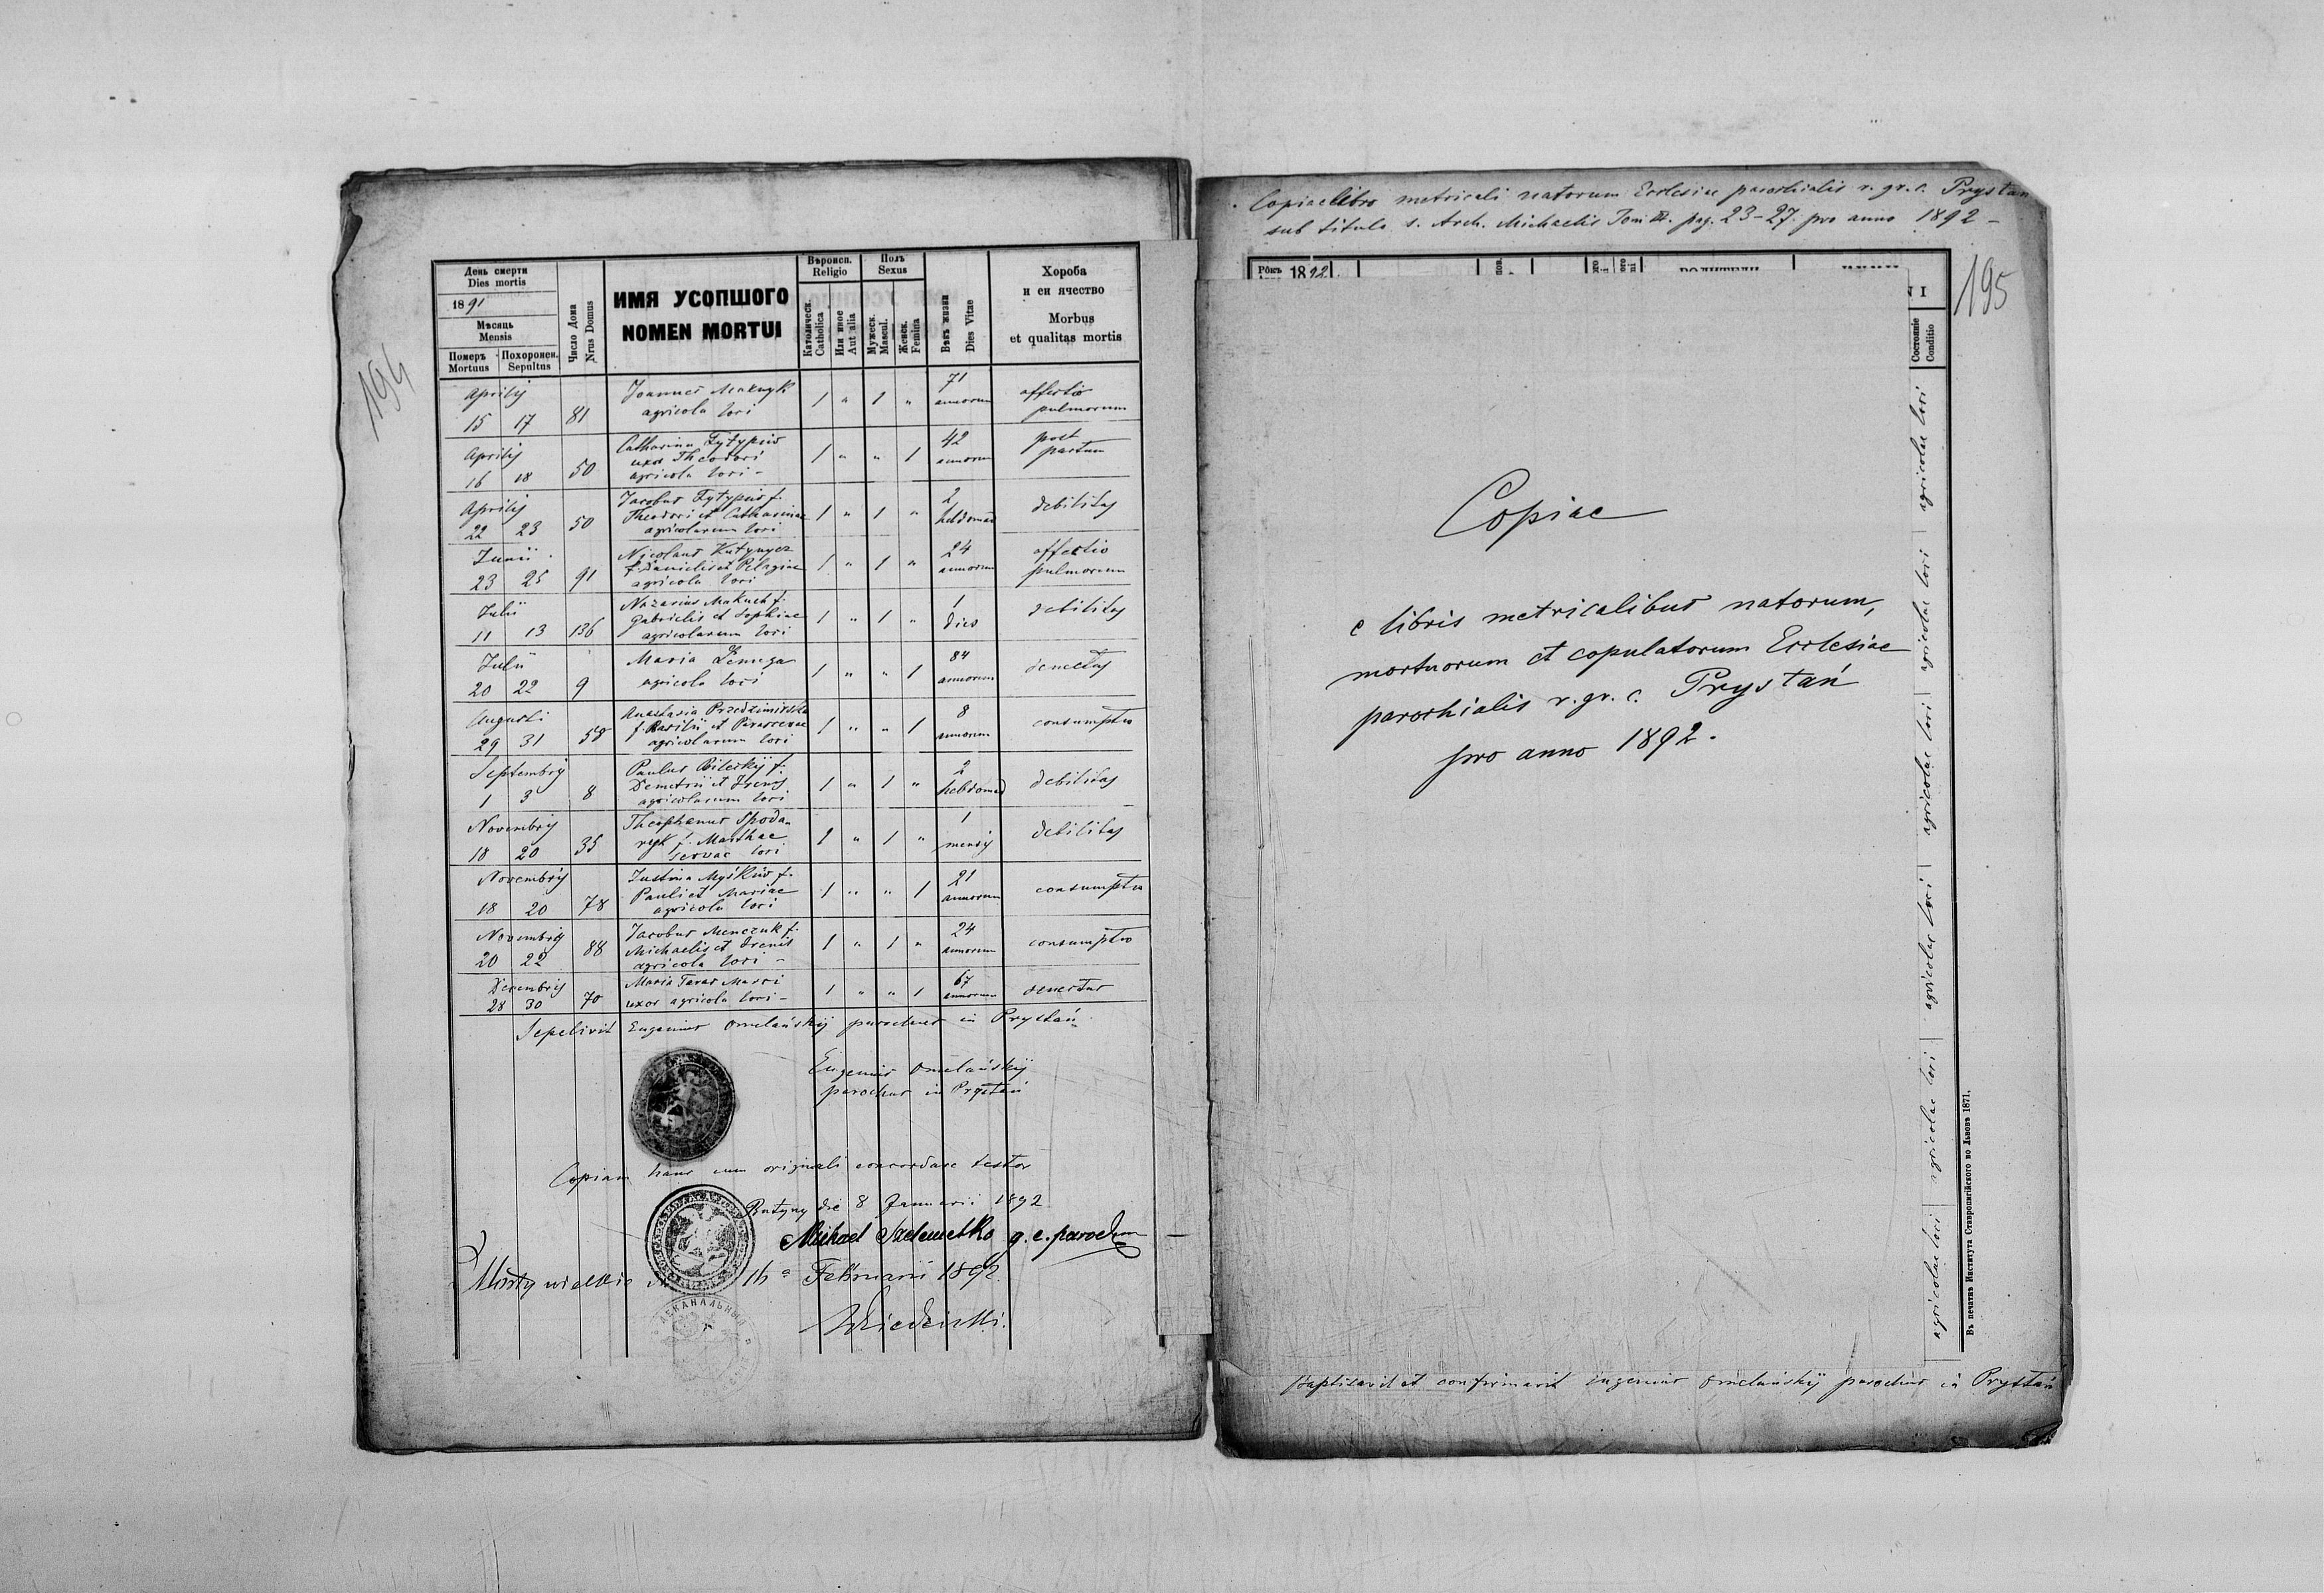 194
День смерти
Dies mortis
1891
Мѣсяць
Mensis
Померъ
Mortuus
Похоронен.
Sepultus
Число Дома
Nrus Domus
ИМЯ УСОПШОГО
NOMEN MORTUI
Вѣроисп.
Religio
Католическ.
Catholica
Или иное
Aut alia
Полъ
Sexus
Мужеск.
Mascul.
Женск.
Femina
Вѣкъ жизни
Dies Vitae
Хороба
и еи ячество
Morbus
et qualitas mortis
Aprilis 15 17 81
Joannes
agricola loci
1 " 1 "
71 annorum
affectio pulmorum
Aprilis 16 18 50
Catharina
uxor Theodori
agricola loci -
1 " " 1
42 annorum
post partum
Aprilis 22 23 50
Jacobus f.
Theodori et Catharinae
agricolarum loci
1 " 1 "
2 hebdomad
debilitas
Junii 23 25 91
Nicolaus
f. Danielis et Pelagiae
agricola loci
1 " 1 "
24 annorum
affectio pulmorum
Julii 11 13 136
Nazarius Makuch f.
Gabrielis et Sophiae
agricolarum loci
1 " 1 "
1 dies
debilitas
Julii 20 22 9
Maria
agricola loci
1 " " 1
84 annorum
senectus
Augusti 29 31 58
Anastasia Przedzimirska
f. Basilii et Parascevae
agricolarum loci
1 " " 1
8 annorum
consumptio
Septembris 1 3 8
Paulus Bileckij f.
Demetrii et Irenis
agricolarum loci
1 " 1 "
2 hebdomad
debilitas
Novembris 18 20 35
Theophanus Spoda-
ryk f. Marthae
servae loci
1 " 1 "
1 mensis
debilitas
Novembris 18 20 78
Justina Myśków f.
Pauli et Mariae
agricola loci
1 " " 1
21 annorum
consumptio
Novembris 20 22 88
Jacobus Menczuk f.
Michaelis et Irenis
agricola loci -
1 " 1 "
24 annorum
consumptio
Decembris 28 30 70
Maria Taras
uxor agricola loci -
1 " " 1
67 annorum
senectus
Sepelivit Eugenius Omelańskij parochus in Prystań
Eugenius Omelańskij
parochus in Prystań
Copiam hanc cum originali concordare testor
Butyny die 8 Januarii 1892
Michael Szelemetko g. c. parochus
Mosty wielkie 16 Februarii 1892.
ДЕКАНАЛЬНЫЙ
Copia e libro metricali natorum Ecclesiae parochialis r. gr. c. Prystań
sub titulo s. Arch. Michaelis Tom III. pag. 23-27. pro anno 1892 -
195
Рôкъ 1892
Состояніе
Conditio
Copiae
e libris metricalibus natorum,
mortuorum et copulatorum Ecclesiae
parochialis r. gr. c. Prystań
pro anno 1892.
agricolae loci
agricolae loci
agricolae loci
agricolae loci
agricolae loci
agricolae loci
Въ печатнѣ Института Ставропигійского во Львовѣ 1871.
Baptisavit et confirmavit Eugenius Omelańskij parochus in Prystań